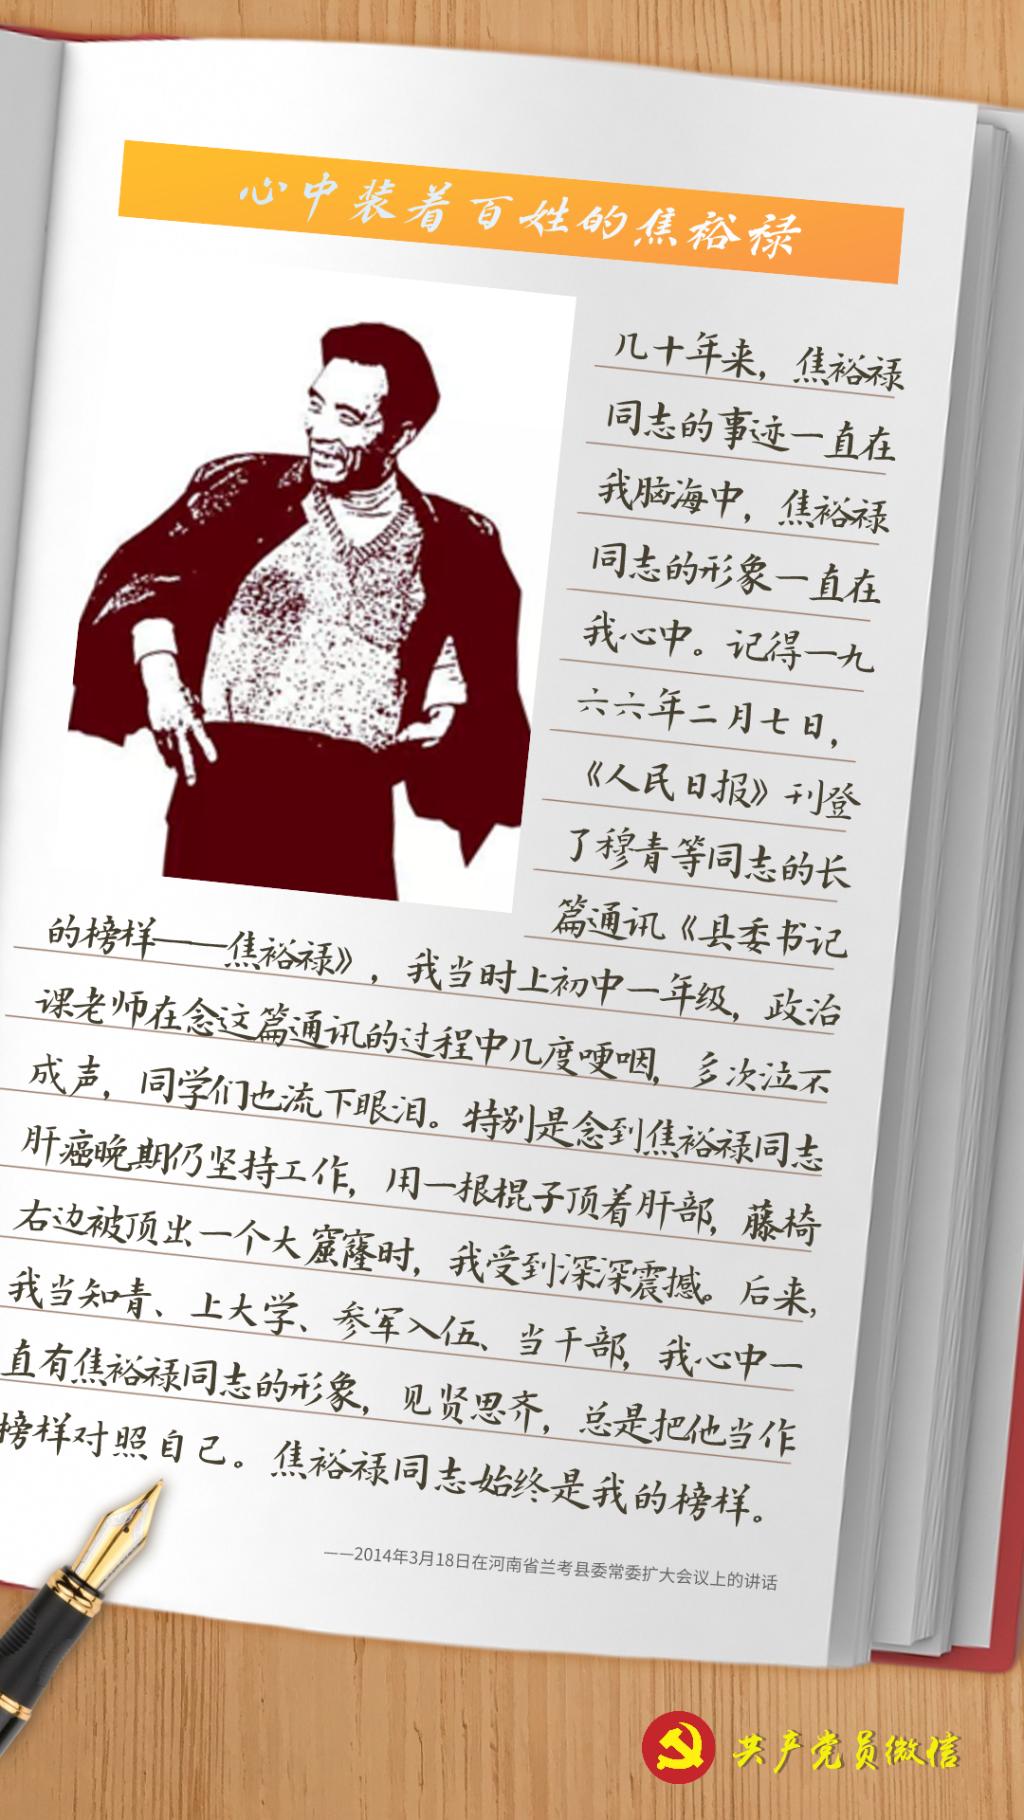 心中装着百姓的焦裕禄
几十年来，焦裕禄
同志的事迹一直在
我脑海中，焦裕禄
同志的形象一直在
我心中。记得一九
六六年二月七日，
《人民日报》刊登
了穆青等同志的长
篇通讯《县委书记
的榜样——焦裕禄》，我当时上初中一年级，政治
课老师在念这篇通讯的过程中几度哽咽，多次泣不
成声，同学们也流下眼泪。特别是念到焦裕禄同志
肝癌晚期仍坚持工作，用一根棍子顶着肝部，藤椅
右边被顶出一个大窟窿时，我受到深深震撼。后来，
我当知青、上大学、参军入伍、当干部，我心中一
直有焦裕禄同志的形象，见贤思齐，总是把他当作
榜样对照自己。焦裕禄同志始终是我的榜样。
——2014年3月18日在河南省兰考县委常委扩大会议上的讲话
共产党员微信